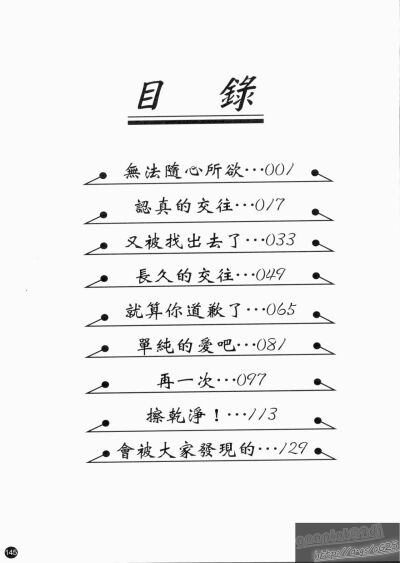 目 錄
無法隨心所欲···001
認真的交往···017
又被找出去了···033
長久的交往···049
就算你道歉了···065
單純的愛吧···081
再一次···097
擦乾淨！···113
會被大家發現的···129
145